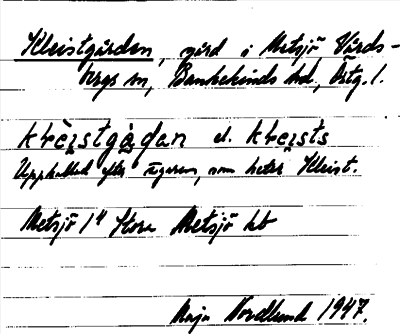 Kleistgården, gård i Metsjö Vårds-
bergs sn, Bankekinds hd, Östg. l.
krèi̯stgɑ̀dan el. krei̯sts
Uppkallad efter ägaren, som heter Kleist.
Metsjö 1⁴ Stora Metsjö kb
Maja Nordlund 1947.